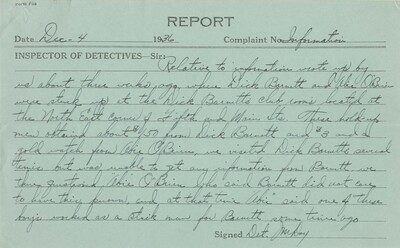 REPORT
Date Dec - 4 1936 Complaint No. Information
INSPECTOR OF DETECTIVES—Sir:
Relative to information wrote up by
we about three weeks ago, where Dick Barnett and Abie O'Brien
were stuck up at the Dick Barnetts club rooms located at
the North East corner of Fifth and Main Sts. Three holdup
men obtained about $150 from Dick Barnett and $3 and a
gold watch from Abe O'Brien, we visited Dick Barnett several
times but was unable to get any information from Barnett we
then questioned Abie O'Brien who said Barnett did not care
to have this known, and at that time Abie said one of these
boys worked as a stick man for Barnett some time ago
Signed Dets. McKay